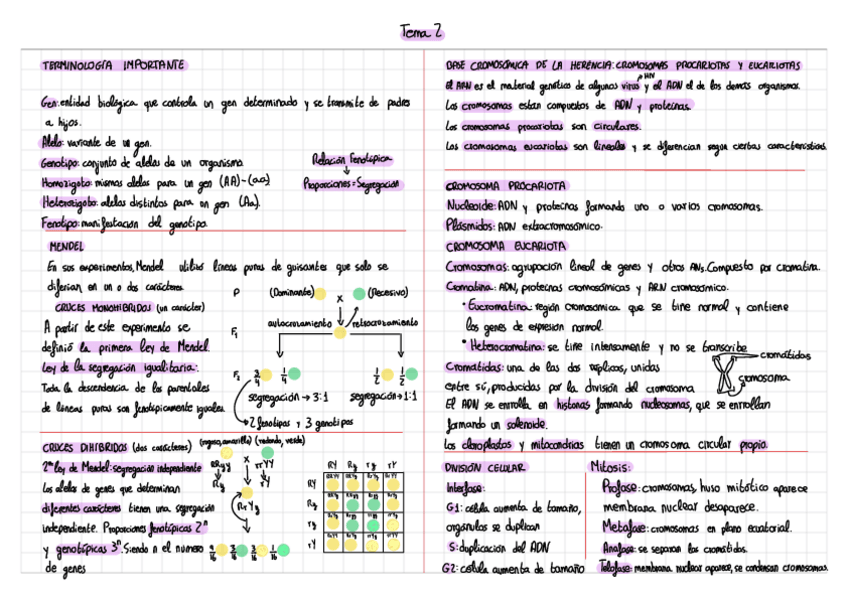 Tema 2
TERMINOLOGÍA IMPORTANTE
Gen: entidad biológica que controla un gen determinado y se transmite de padres
a hijos.
Alelo: variante de un gen.
Genotipo: conjunto de alelos de un organismo
Homozigoto: mismos alelos para un gen (AA)-(aa)
Heterozigoto: alelos distintos para un gen (Aa).
Fenotipo: manifestación del genotipo.
Relación Fenotípica
Proporciones = Segregación
MENDEL
En sus experimentos, Mendel utilizó líneas puras de guisantes que solo se
diferían en un o dos carácteres.
CRUCES MONOHIBRIDOS (un carácter)
A partir de este experimento se
definió la primera ley de Mendel.
Ley de la segregación igualitaria:
Toda la descendencia de los parentales
de líneas puras son fenotípicamente iguales.
P (Dominante) X (Recesivo)
autocruzamiento retrocruzamiento
F1
F2 3/4 1/4 1/2 1/2
segregación → 3:1 segregación → 1:1
2 fenotipos y 3 genotipos
CRUCES DIHIBRIDOS (dos carácteres) (rugoso, amarillo) (redondo, verde)
2ª ley de Mendel: segregación independiente
Los alelos de genes que determinan
diferentes carácteres tienen una segregación
independiente. Proporciones fenotípicas 2ⁿ
y genotípicas 3ⁿ. Siendo n el número
de genes
RRyy X rrYY
Ry rY
RrYy
9/16 3/16 3/16 1/16
RY Ry ry rY
RY
Ry
ry
rY
BASE CROMOSÓMICA DE LA HERENCIA: CROMOSOMAS PROCARIOTAS Y EUCARIOTAS
El ARN es el material genético de algunos virus y el ADN el de los demás organismos.
Los cromosomas están compuestos de ADN y proteínas.
Los cromosomas procariotas son circulares.
Los cromosomas eucariotas son lineales y se diferencian según ciertas características.
CROMOSOMA PROCARIOTA
Nucleoide: ADN y proteínas formando uno o varios cromosomas.
Plásmidos: ADN extracromosómico.
CROMOSOMA EUCARIOTA
Cromosomas: agrupación lineal de genes y otros ANs. Compuesto por cromatina.
Cromatina: ADN, proteínas cromosómicas y ARN cromosómico.
• Eucromatina: región cromosómica que se tiñe normal y contiene
los genes de expresión normal.
• Heterocromatina: se tiñe intensamente y no se transcribe
Cromátidas: una de las dos réplicas, unidas
entre sí, producidas por la división del cromosoma
cromátidas
cromosoma
El ADN se enrolla en histonas formando nucleosomas, que se enrollan
formando un solenoide.
Los cloroplastos y mitocondrias tienen un cromosoma circular propio.
DIVISIÓN CELULAR
Interfase:
G1: célula aumenta de tamaño,
orgánulos se duplican
S: duplicación del ADN
G2: célula aumenta de tamaño
Mitosis:
Profase: cromosomas, huso mitótico aparece
membrana nuclear desaparece.
Metafase: cromosomas en plano ecuatorial.
Anafase: se separan las cromátidas.
Telofase: membrana nuclear aparece, se condensan cromosomas.